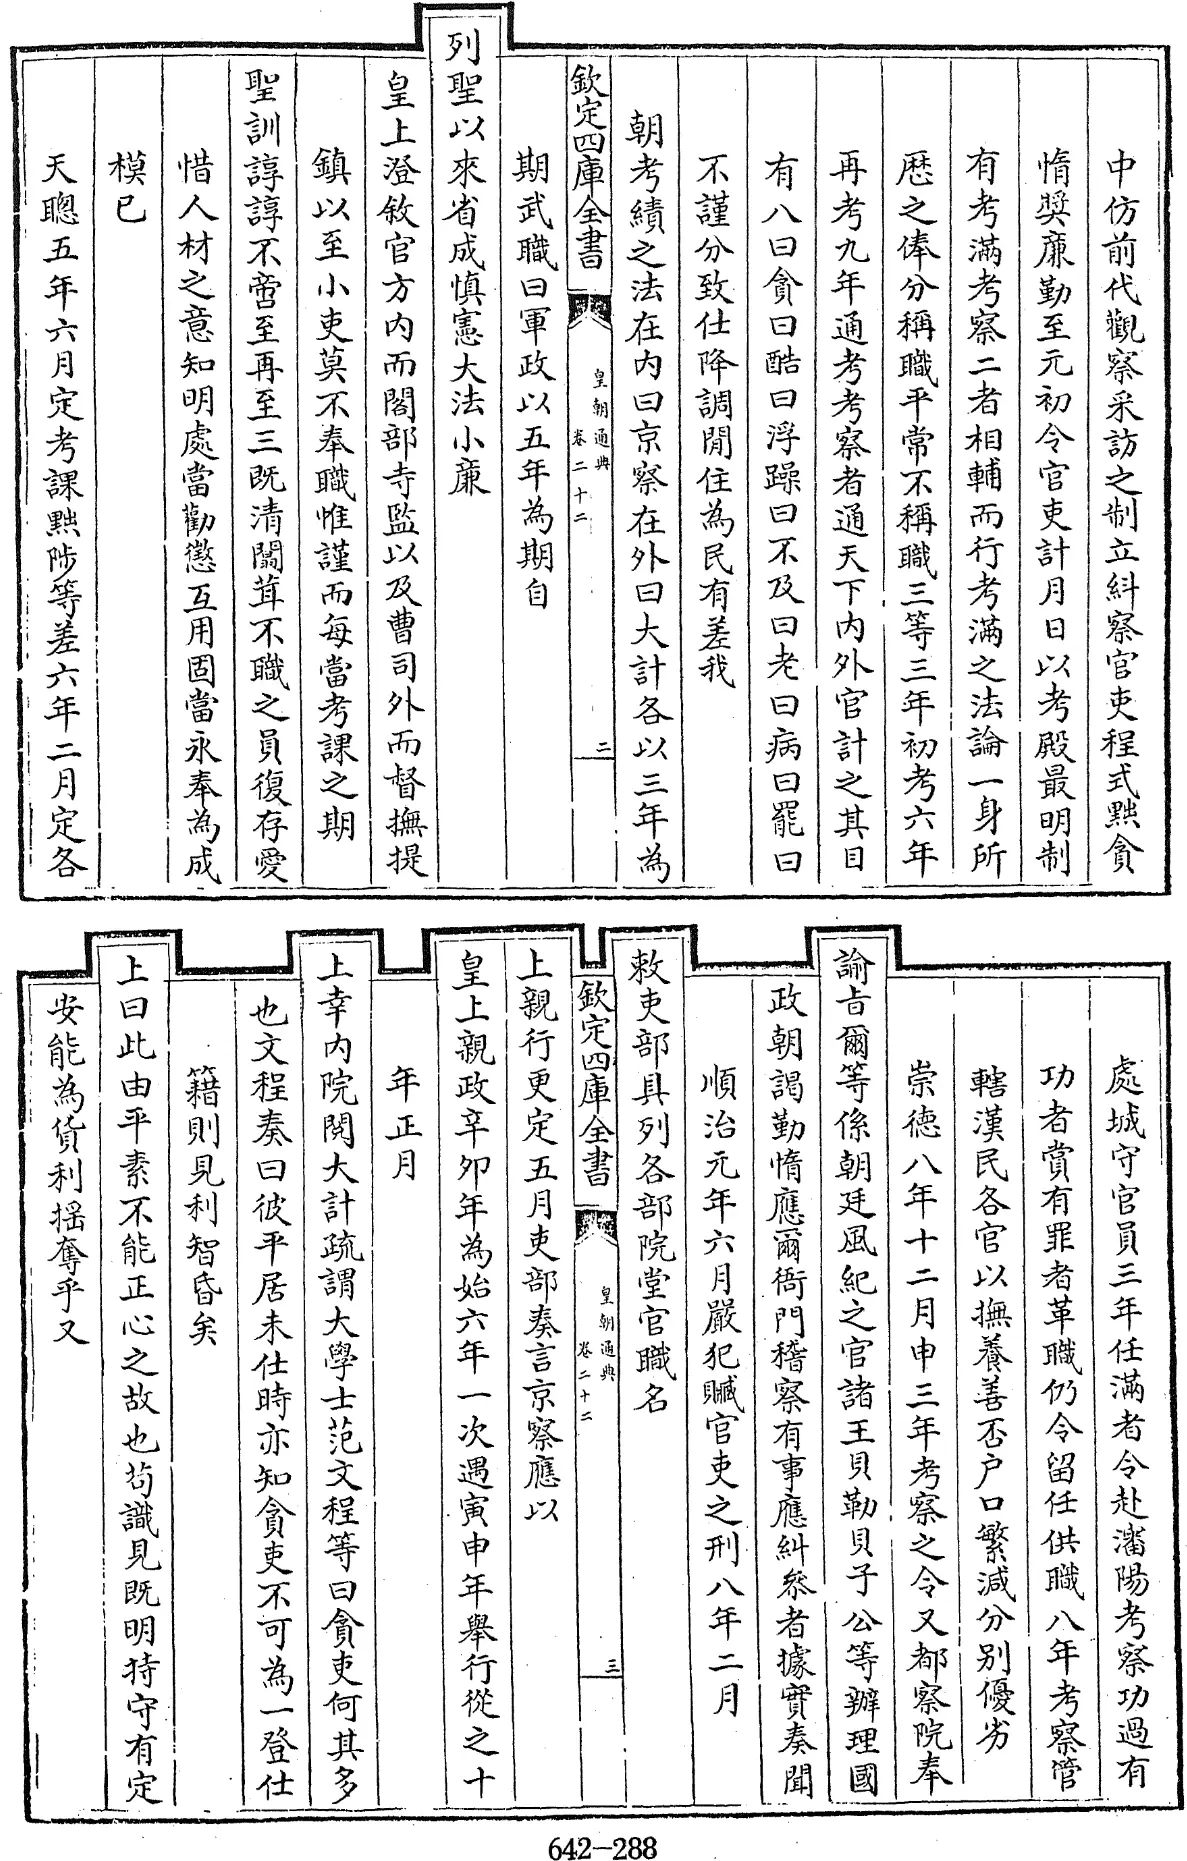 中仿前代觀察采訪之制立糾察官吏程式黜貪
惰奬廉勤至元初令官吏計月日以考殿最明制
有考滿考察二者相輔而行考滿之法論一身所
歴之俸分稱職平常不稱職三等三年初考六年
再考九年通考考察者通天下内外官計之其目
有八曰貪曰酷曰浮躁曰不及曰老曰病曰罷曰
不謹分致仕降調閒住為民有差我
朝考績之法在内曰京察在外曰大計各以三年為
欽定四庫全書
皇朝通典
卷二十二
二
期武職曰軍政以五年為期自
列聖以來省成慎憲大法小亷
皇上澄敘官方内而閣部寺監以及曹司外而督撫提
鎮以至小吏莫不奉職惟謹而每當考課之期
聖訓諄諄不啻至再至三既清闒茸不職之員復存愛
惜人材之意知明處當勸懲互用固當永奉為成
模已
天聰五年六月定考課黜陟等差六年二月定各
處城守官員三年任滿者令赴瀋陽考察功過有
功者賞有罪者革職仍令留任供職八年考察管
轄漢民各官以撫養善否户口繁減分别優劣
崇德八年十二月申三年考察之令又都察院奉
諭旨爾等係朝廷風紀之官諸王貝勒貝子公等辦理國
政朝謁勤惰應爾衙門稽察有事應糾叅者據實奏聞
順治元年六月嚴犯贓官吏之刑八年二月
敕吏部具列各部院堂官職名
欽定四庫全書
皇朝通典
卷二十二
三
上親行更定五月吏部奏言京察應以
皇上親政辛卯年為始六年一次遇寅申年舉行從之十
年正月
上幸内院閲大計疏謂大學士范文程等曰貪吏何其多
也文程奏曰彼平居未仕時亦知貪吏不可為一登仕
籍則見利智昏矣
上曰此由平素不能正心之故也苟識見既明持守有定
安能為貨利揺奪乎又
642-288